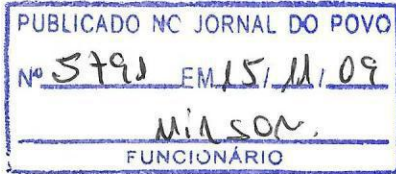 PUBLICADO NC JORNAL DO POVO
Nº 5791 EM 15/11/09
Milson.
FUNCIONÁRIO